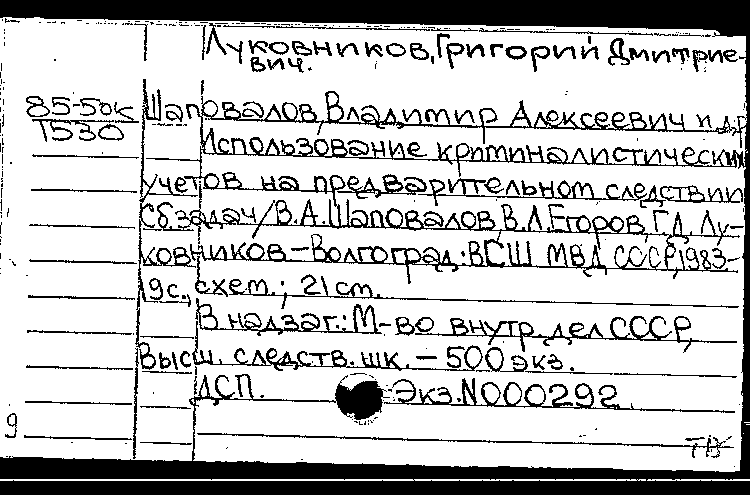 Луковников, Григорий Дмитрие-
вич.
85-5ок Шаповалов, Владимир Алексеевич и др.
1530
Использование криминалистических
учетов на предварительном следствии
Сб. задач/В.А. Шаповалов, В.Л. Егоров, Г.Д. Лу-
ковников - Волгоград: ВСШ МВД СССР, 1983-
19с., схем.; 21 см.
В надзаг.: М-во внутр. дел СССР,
Высш. следств. шк. - 500 экз.
ДСП. Экз. N000292.
9